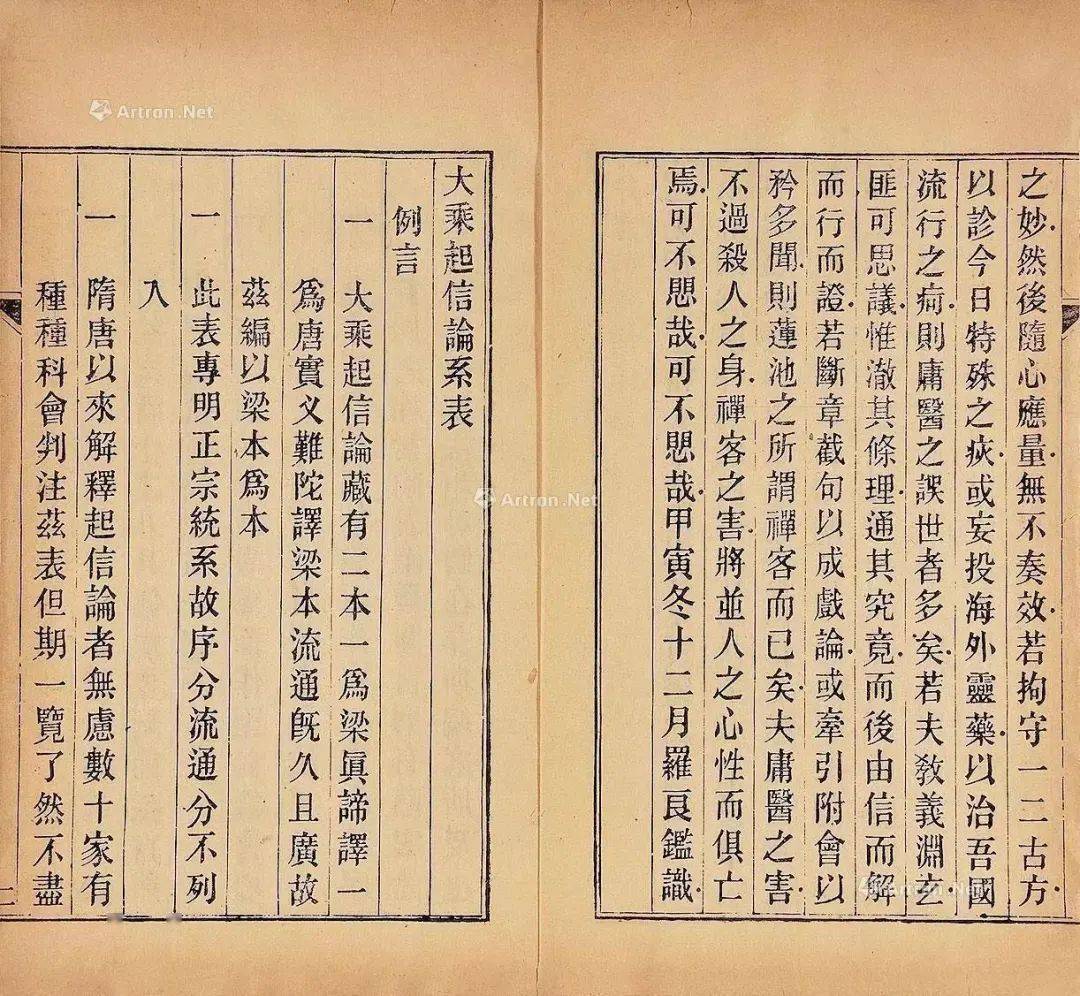 之妙然後隨心應量無不奏效若拘守一二古方
以診今日特殊之疢或妄投海外靈藥以治吾國
流行之疴則庸醫之誤世者多矣若夫敎義淵玄
匪可思議惟澈其條理通其究竟而後由信而解
而行而證若斷章截句以成戲論或牽引附會以
矜多聞則蓮池之所謂禪客而已矣夫庸醫之害
不過殺人之身禪客之害將並人之心性而俱亡
焉可不思哉可不思哉甲寅冬十二月羅良鑑識
大乘起信論系表
例言
一 大乘起信論藏有二本一爲梁眞諦譯一
爲唐實叉難陀譯梁本流通旣久且廣故
茲編以梁本爲本
一 此表專明正宗統系故序分流通分不列
入
一 隋唐以來解釋起信論者無慮數十家有
種種科會判注茲表但期一覽了然不盡
Artron.Net
Artron.Net
Artron.Net